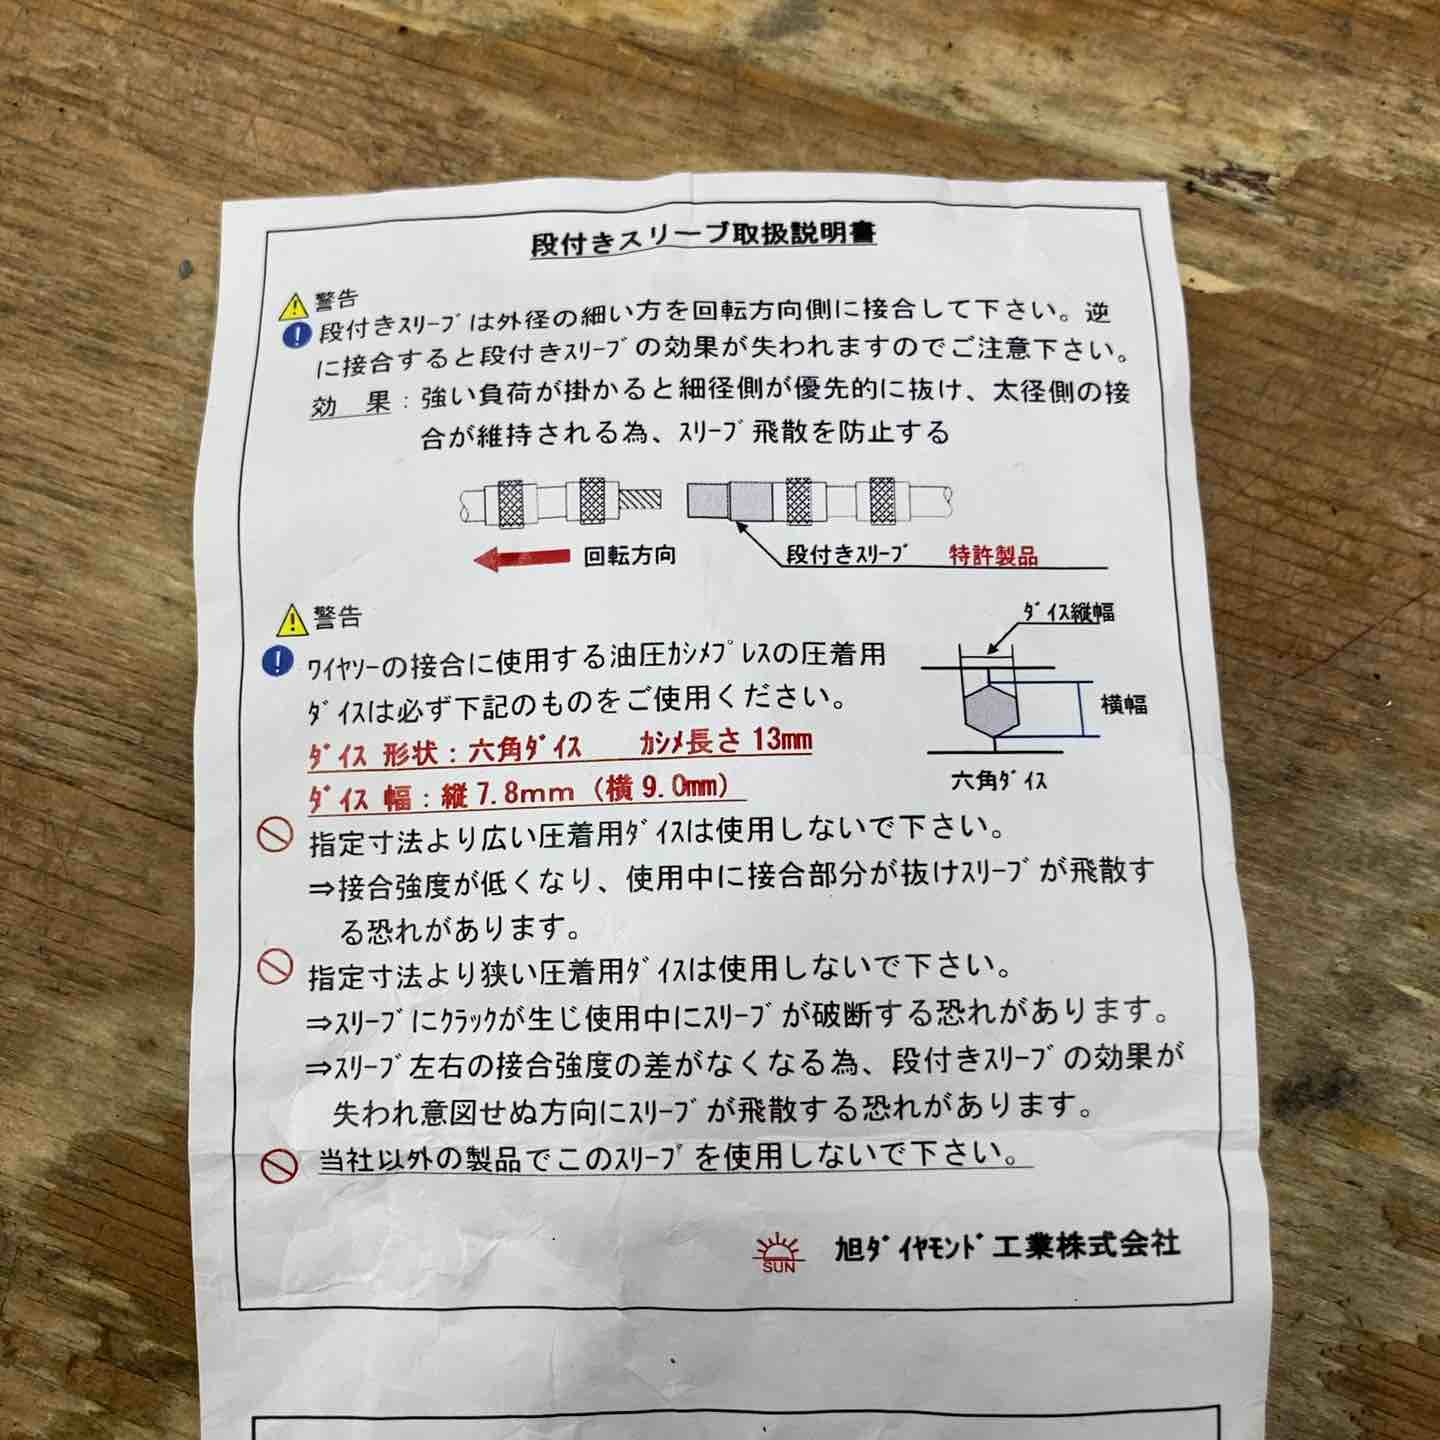 段付きスリーブ取扱説明書
警告
段付きｽﾘｰﾌﾞは外径の細い方を回転方向側に接合して下さい。逆
に接合すると段付きｽﾘｰﾌﾞの効果が失われますのでご注意下さい。
効　果：強い負荷が掛かると細径側が優先的に抜け、太径側の接
合が維持される為、ｽﾘｰﾌﾞ飛散を防止する
回転方向
段付きｽﾘｰﾌﾞ 特許製品
警告
ﾀﾞｲｽ縦幅
ﾜｲﾔｿｰの接合に使用する油圧ｶｼﾒﾌﾟﾚｽの圧着用
ﾀﾞｲｽは必ず下記のものをご使用ください。
横幅
ﾀﾞｲｽ 形状：六角ﾀﾞｲｽ　ｶｼﾒ長さ13mm
六角ﾀﾞｲｽ
ﾀﾞｲｽ 幅：縦7.8mm（横9.0mm）
指定寸法より広い圧着用ﾀﾞｲｽは使用しないで下さい。
⇒接合強度が低くなり、使用中に接合部分が抜けｽﾘｰﾌﾞが飛散す
る恐れがあります。
指定寸法より狭い圧着用ﾀﾞｲｽは使用しないで下さい。
⇒ｽﾘｰﾌﾞにｸﾗｯｸが生じ使用中にｽﾘｰﾌﾞが破断する恐れがあります。
⇒ｽﾘｰﾌﾞ左右の接合強度の差がなくなる為、段付きｽﾘｰﾌﾞの効果が
失われ意図せぬ方向にｽﾘｰﾌﾞが飛散する恐れがあります。
当社以外の製品でこのｽﾘｰﾌﾞを使用しないで下さい。
SUN 旭ﾀﾞｲﾔﾓﾝﾄﾞ工業株式会社